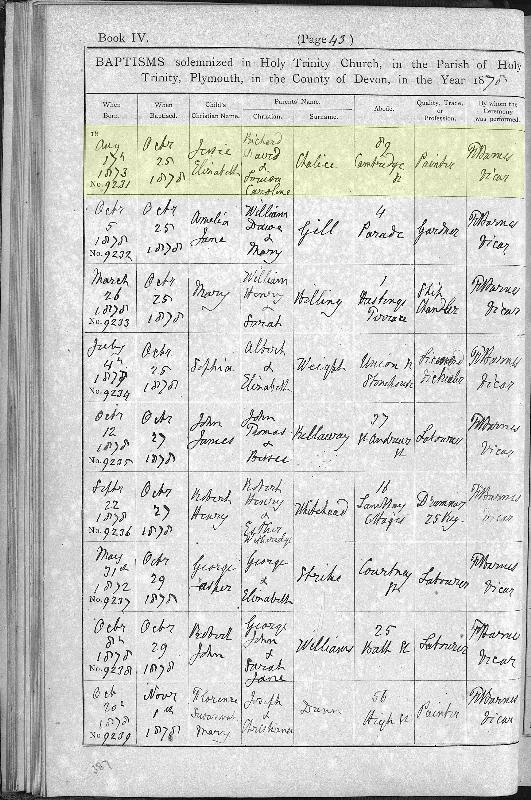 Book IV.
(Page 43)
BAPTISMS solemnized in Holy Trinity Church, in the Parish of Holy
Trinity, Plymouth, in the County of Devon, in the Year 1878
When Born. When Baptised. Child's Christian Name. Parents' Name. Christian. Surname. Abode. Quality, Trade, or Profession. By whom the Ceremony was performed.
18
Aug 17th 1873 No. 9231 Octr 25 1878 Jessie Elizabeth Richard David & Louisa Caroline Chalice 82 Cambridge St Painter Vicar
Octr 5 1878 No. 9232 Octr 25 1878 Amelia Jane William & Mary Gill 4 Parade Gardner FBarnes Vicar
March 26 1878 No. 9233 Octr 25 1878 Mary William Henry & Sarah 1 Hastings Terrace Ship Chandler FBarnes Vicar
July 4th 1878 No. 9234 Octr 25 1878 Sophia Albert & Elizabeth Weight Union St Stonehouse Licensed Victualer FBarnes Vicar
Octr 12 1878 No. 9235 Octr 27 1878 John James John Thomas & Kellaway 37 St Andrews St Labourer FBarnes Vicar
Septr 22 1878 No. 9236 Octr 27 1878 Robert Henry Robert Henry & Esther Whitehead 16 Cottages Drummer 25 Reg. FBarnes Vicar
May 31st 1872 No. 9237 Octr 29 1878 George George & Elizabeth Strike Courtney St Labourer FBarnes Vicar
Octr 8th 1878 No. 9238 Octr 29 1878 Robert John George John & Sarah Jane Williams 25 Bath St Labourer FBarnes Vicar
Oct 20th 1878 No. 9239 Novr 1st 1878 Florence Mary Joseph & Christianna Dunn 56 High St Painter FBarnes Vicar
387